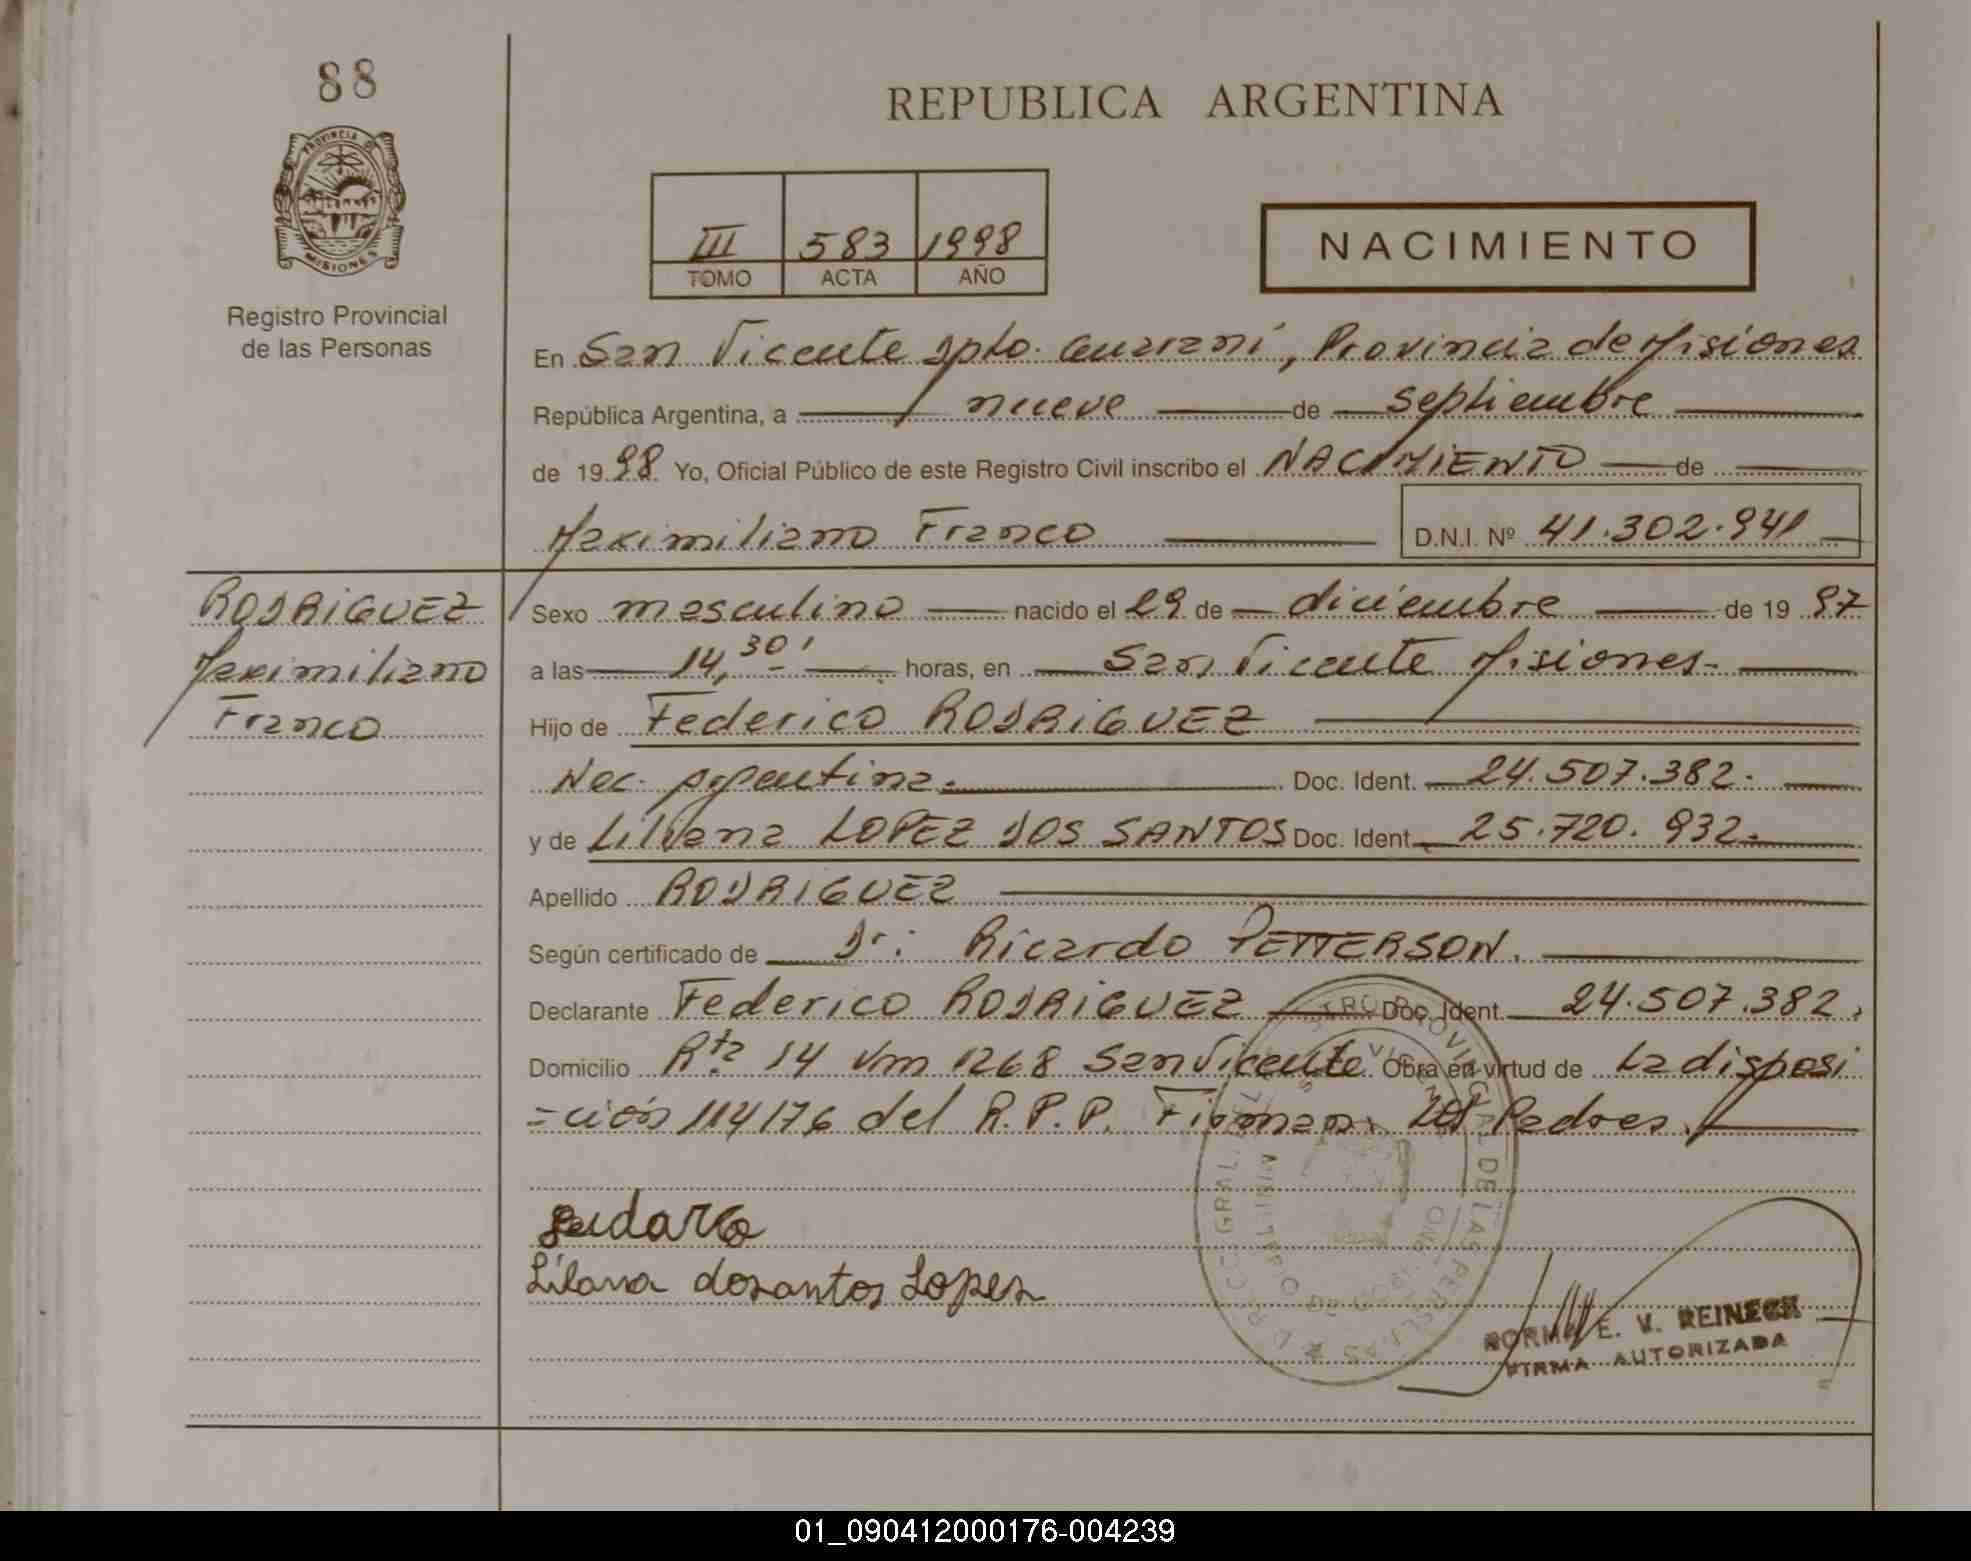 88
REPUBLICA ARGENTINA
PROVINCIA DE
MISIONES
Registro Provincial
de las Personas
III 583 1998
TOMO ACTA AÑO
NACIMIENTO
En San Vicente Dpto. Guaraní, Provincia de Misiones
República Argentina, a nueve de septiembre
de 1998 Yo, Oficial Público de este Registro Civil inscribo el NACIMIENTO de
Maximiliano Franco D.N.I. Nº 41.302.941
RODRIGUEZ
Maximiliano
Franco
Sexo masculino nacido el 29 de diciembre de 1997
a las 14,30' horas, en San Vicente Misiones-
Hijo de Federico RODRIGUEZ
Nac. Argentina. Doc. Ident. 24.507.382.
y de Liliana LOPEZ DOS SANTOS Doc. Ident. 25.720.932.
Apellido RODRIGUEZ
Según certificado de Dr: Ricardo PETTERSON.
Declarante Federico RODRIGUEZ Doc. Ident. 24.507.382.
Domicilio Rta 14 Km 1268 San Vicente Obra en virtud de La disposi
=ción 114/76 del R.P.P. Firman: Los Padres.
Lilana dosantos Lopes
NORMA E. V. REINECK
FIRMA AUTORIZADA
01_090412000176-004239